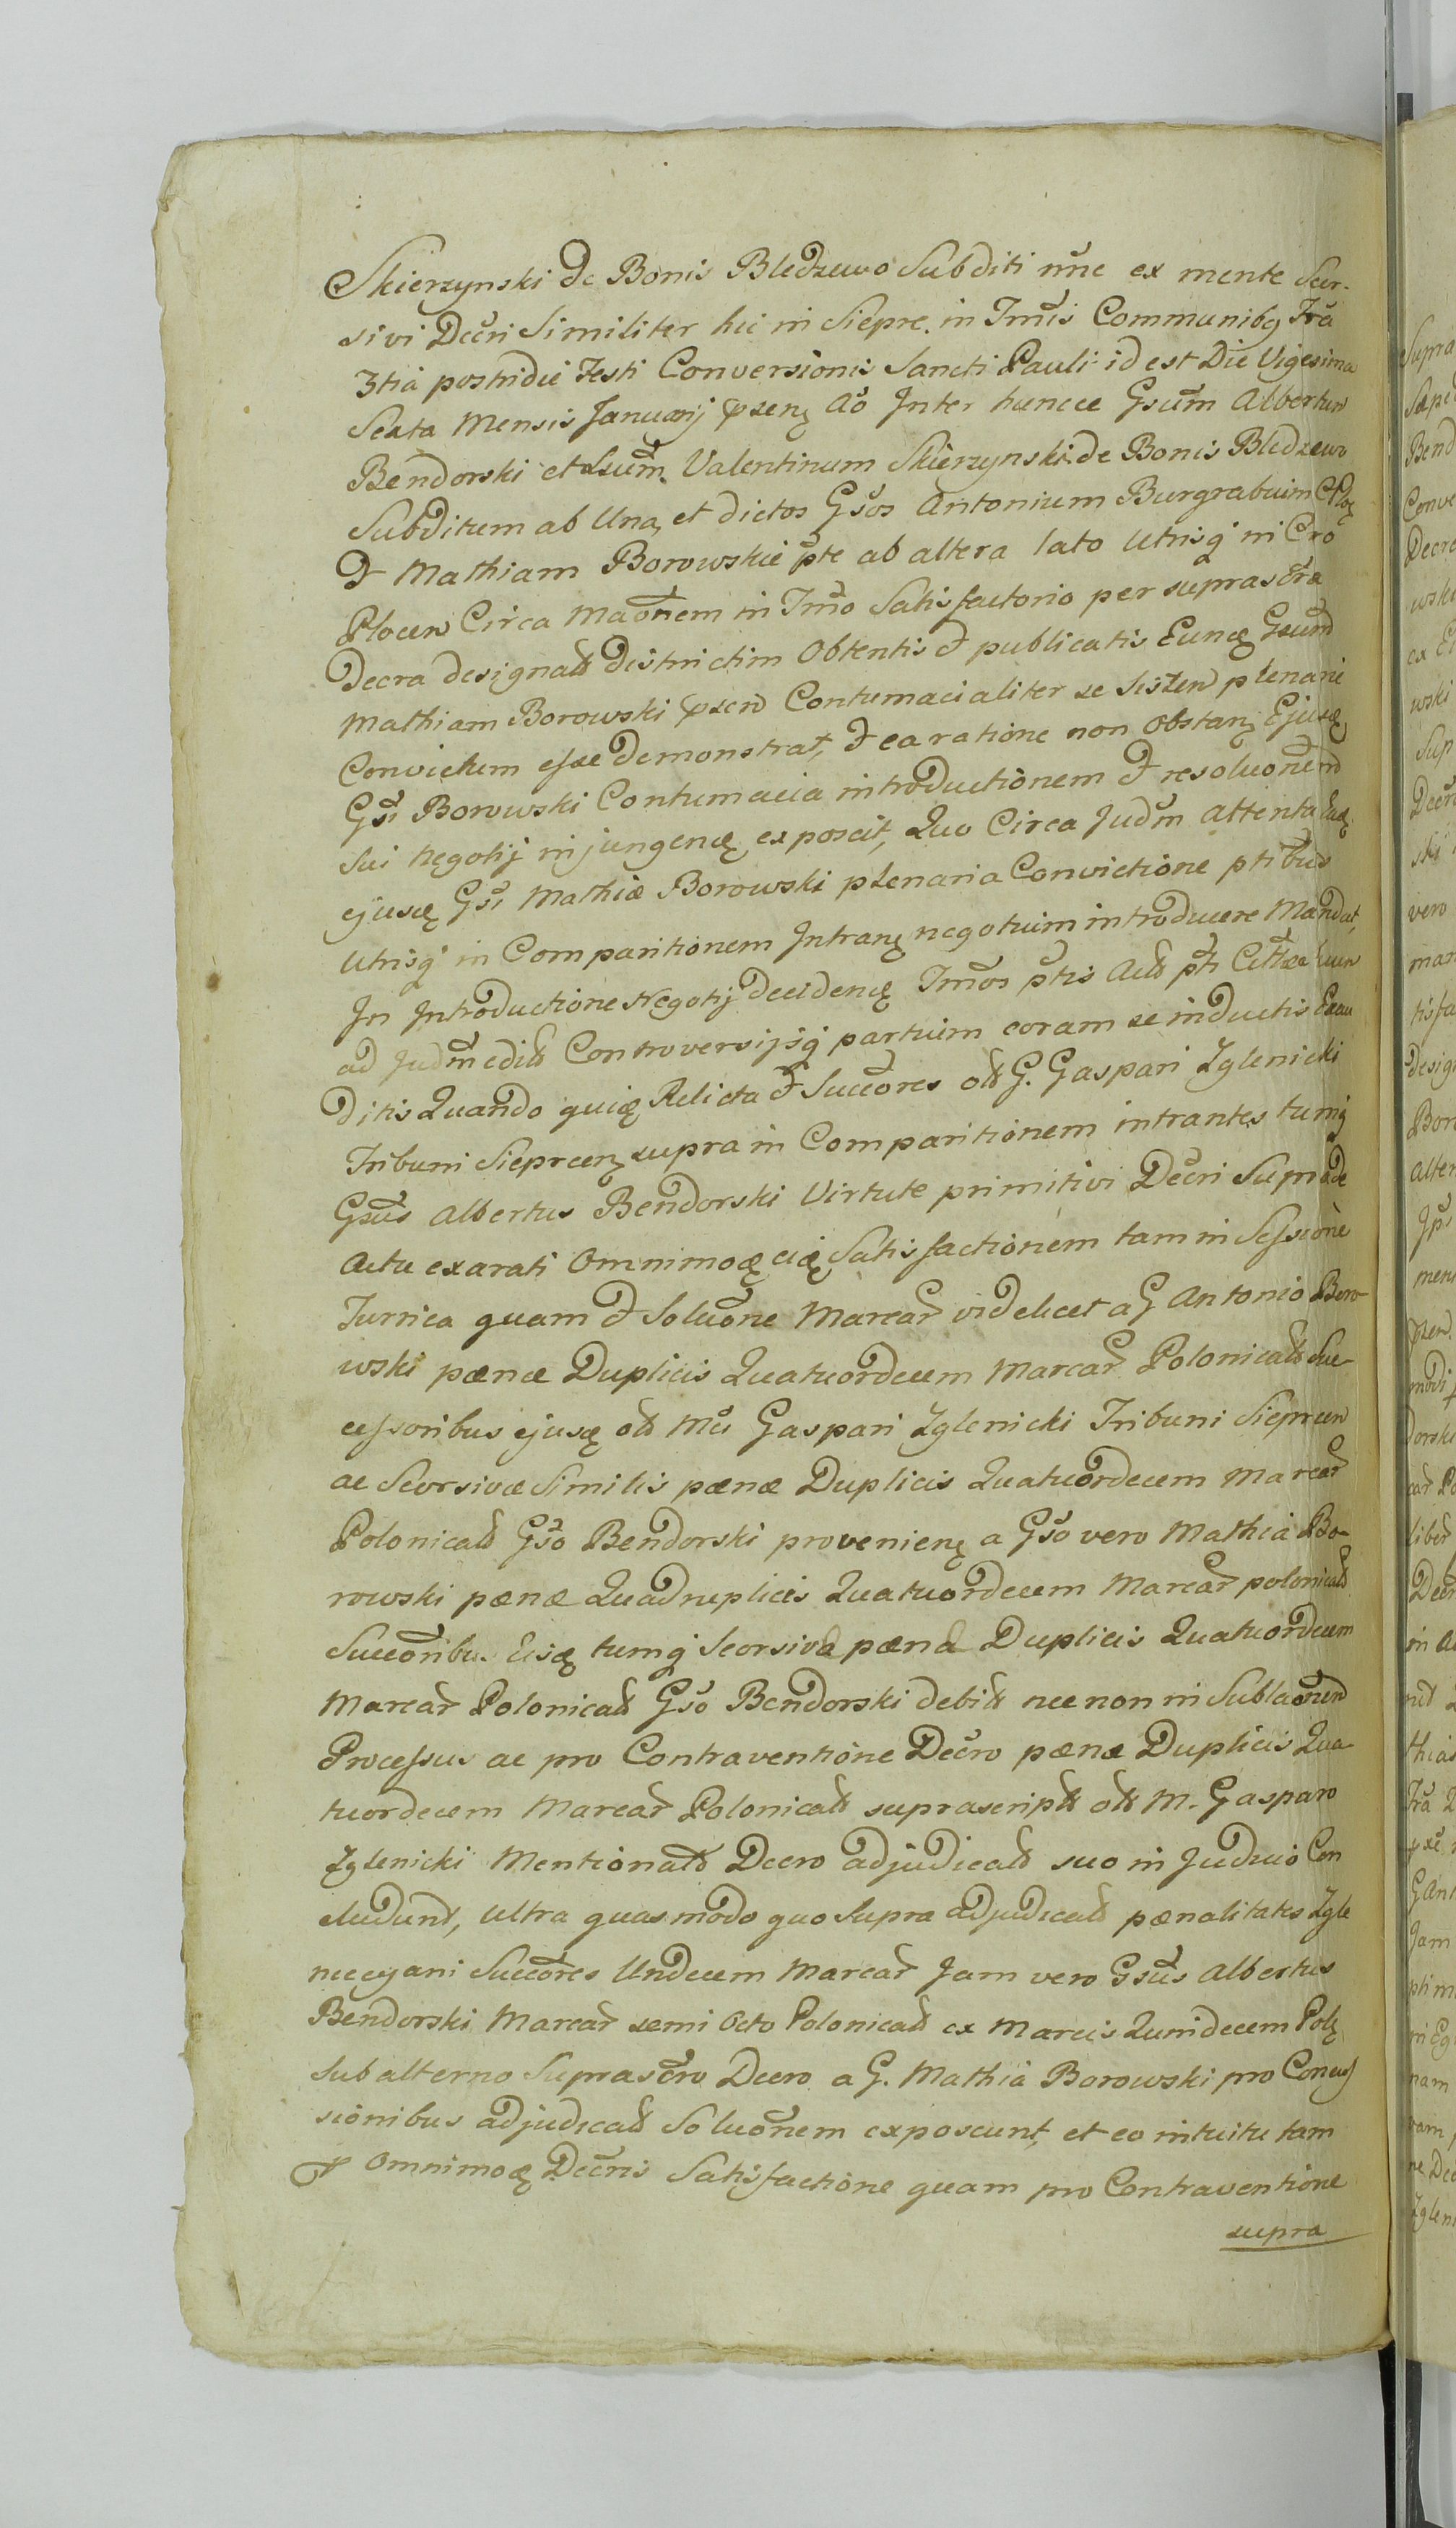 Skierzynski de Bonis Bledzewo Subditi nũc ex mente Seor-
sivi Decri Similiter hic in Siepre. in Tmis Communibq Fra
3tia postridie Festi Conversionis Sancti Pauli id est Die Vigesima
Sexta Mensis Januarij Aõ Inter huncce Gsum Albertum
Bendorski et Lsum. Valentinum Skierzynski de Bonis Bledzewo
Subditum ab Una, et dictos Gsos Antonium Burgrabium CPlo
& Mathiam Borowskie pte ab altera lato Utrisq in Cro
Plocen Circa Maõnem in Tmo Satisfactorio per suprascra
Decra designatt districtim Obtentis & publicatis Eunde Gsum
Mathiam Borowski Contumacialiter se sisten plenarie
Convictum esse Demonstrat, & ea ratione non obstan Ejusde
Gsi Borowski Contumacia introductionem & resoluõnem
sui negotij injungende exposcit, Quo Circa Judm attenta
ejusde Gsi Mathiæ Borowski plenaria Convictione ptibus
Utrisq in Comparitionem Intran negotium introducere Mandat,
In Introductione Negotij decidende Tmos ptis Actt pti Citt
ad Judm editt Controversijsq partium coram se inductis Exau
ditis Quando quide Relicta & Succores ott G. Gaspari Zglenicki
Tribuni Sieprcen supra in Comparitionem intrantes tumq
Gsus Albertus Bendorski Virtute primitivi Decri Supra de
Actu exarati Omnimode eide Satisfactionem tam in Sessione
Turrica quam & Soluõne Marcar videlicet a G Antonio Boro
wski pænæ Duplicis Quatuordecem Marcar Polonicatt Suc-
cessoribus ejusde ott Mci Gaspari Zglenicki Tribuni Sieprcen
ac Seorsivæ Similis pænæ Duplicis Quatuordecem Marcar
Polonicatt Gso Bendorski provenien a Gso vero Mathia Bo-
rowski pænæ Quadruplicis Quatuordecem Marcar polonicatt
Succoribus Eisde tumq Seorsiva pæna Duplicis Quatuordecem
Marcar Polonicatt Gso Bendorski debitt nec non in Sublaõnem
Processus ac pro Contraventione Decro pænæ Duplicis Qua-
tuordecem Marcar Polonicatt suprascriptt ott M. Gasparo
Zglenicki Mentionatt Decro adjudicatt suo in Judicio Con
cludunt, ultra quas modo quo Supra adjudicatt pænalitates Zgle
niccyani Succores Undecem Marcar Jam vero Gsus Albertus
Bendorski Marcar semi Octo Polonicatt ex Marcis Quindecem Pol
Sub alterno Suprascro Decro a G. Mathia Borowski pro Concus
sionibus adjudicatt Soluõnem exposcunt, et eo intuitu tam
Omnimode Decris Satisfactione quam pro Contraventione
supra